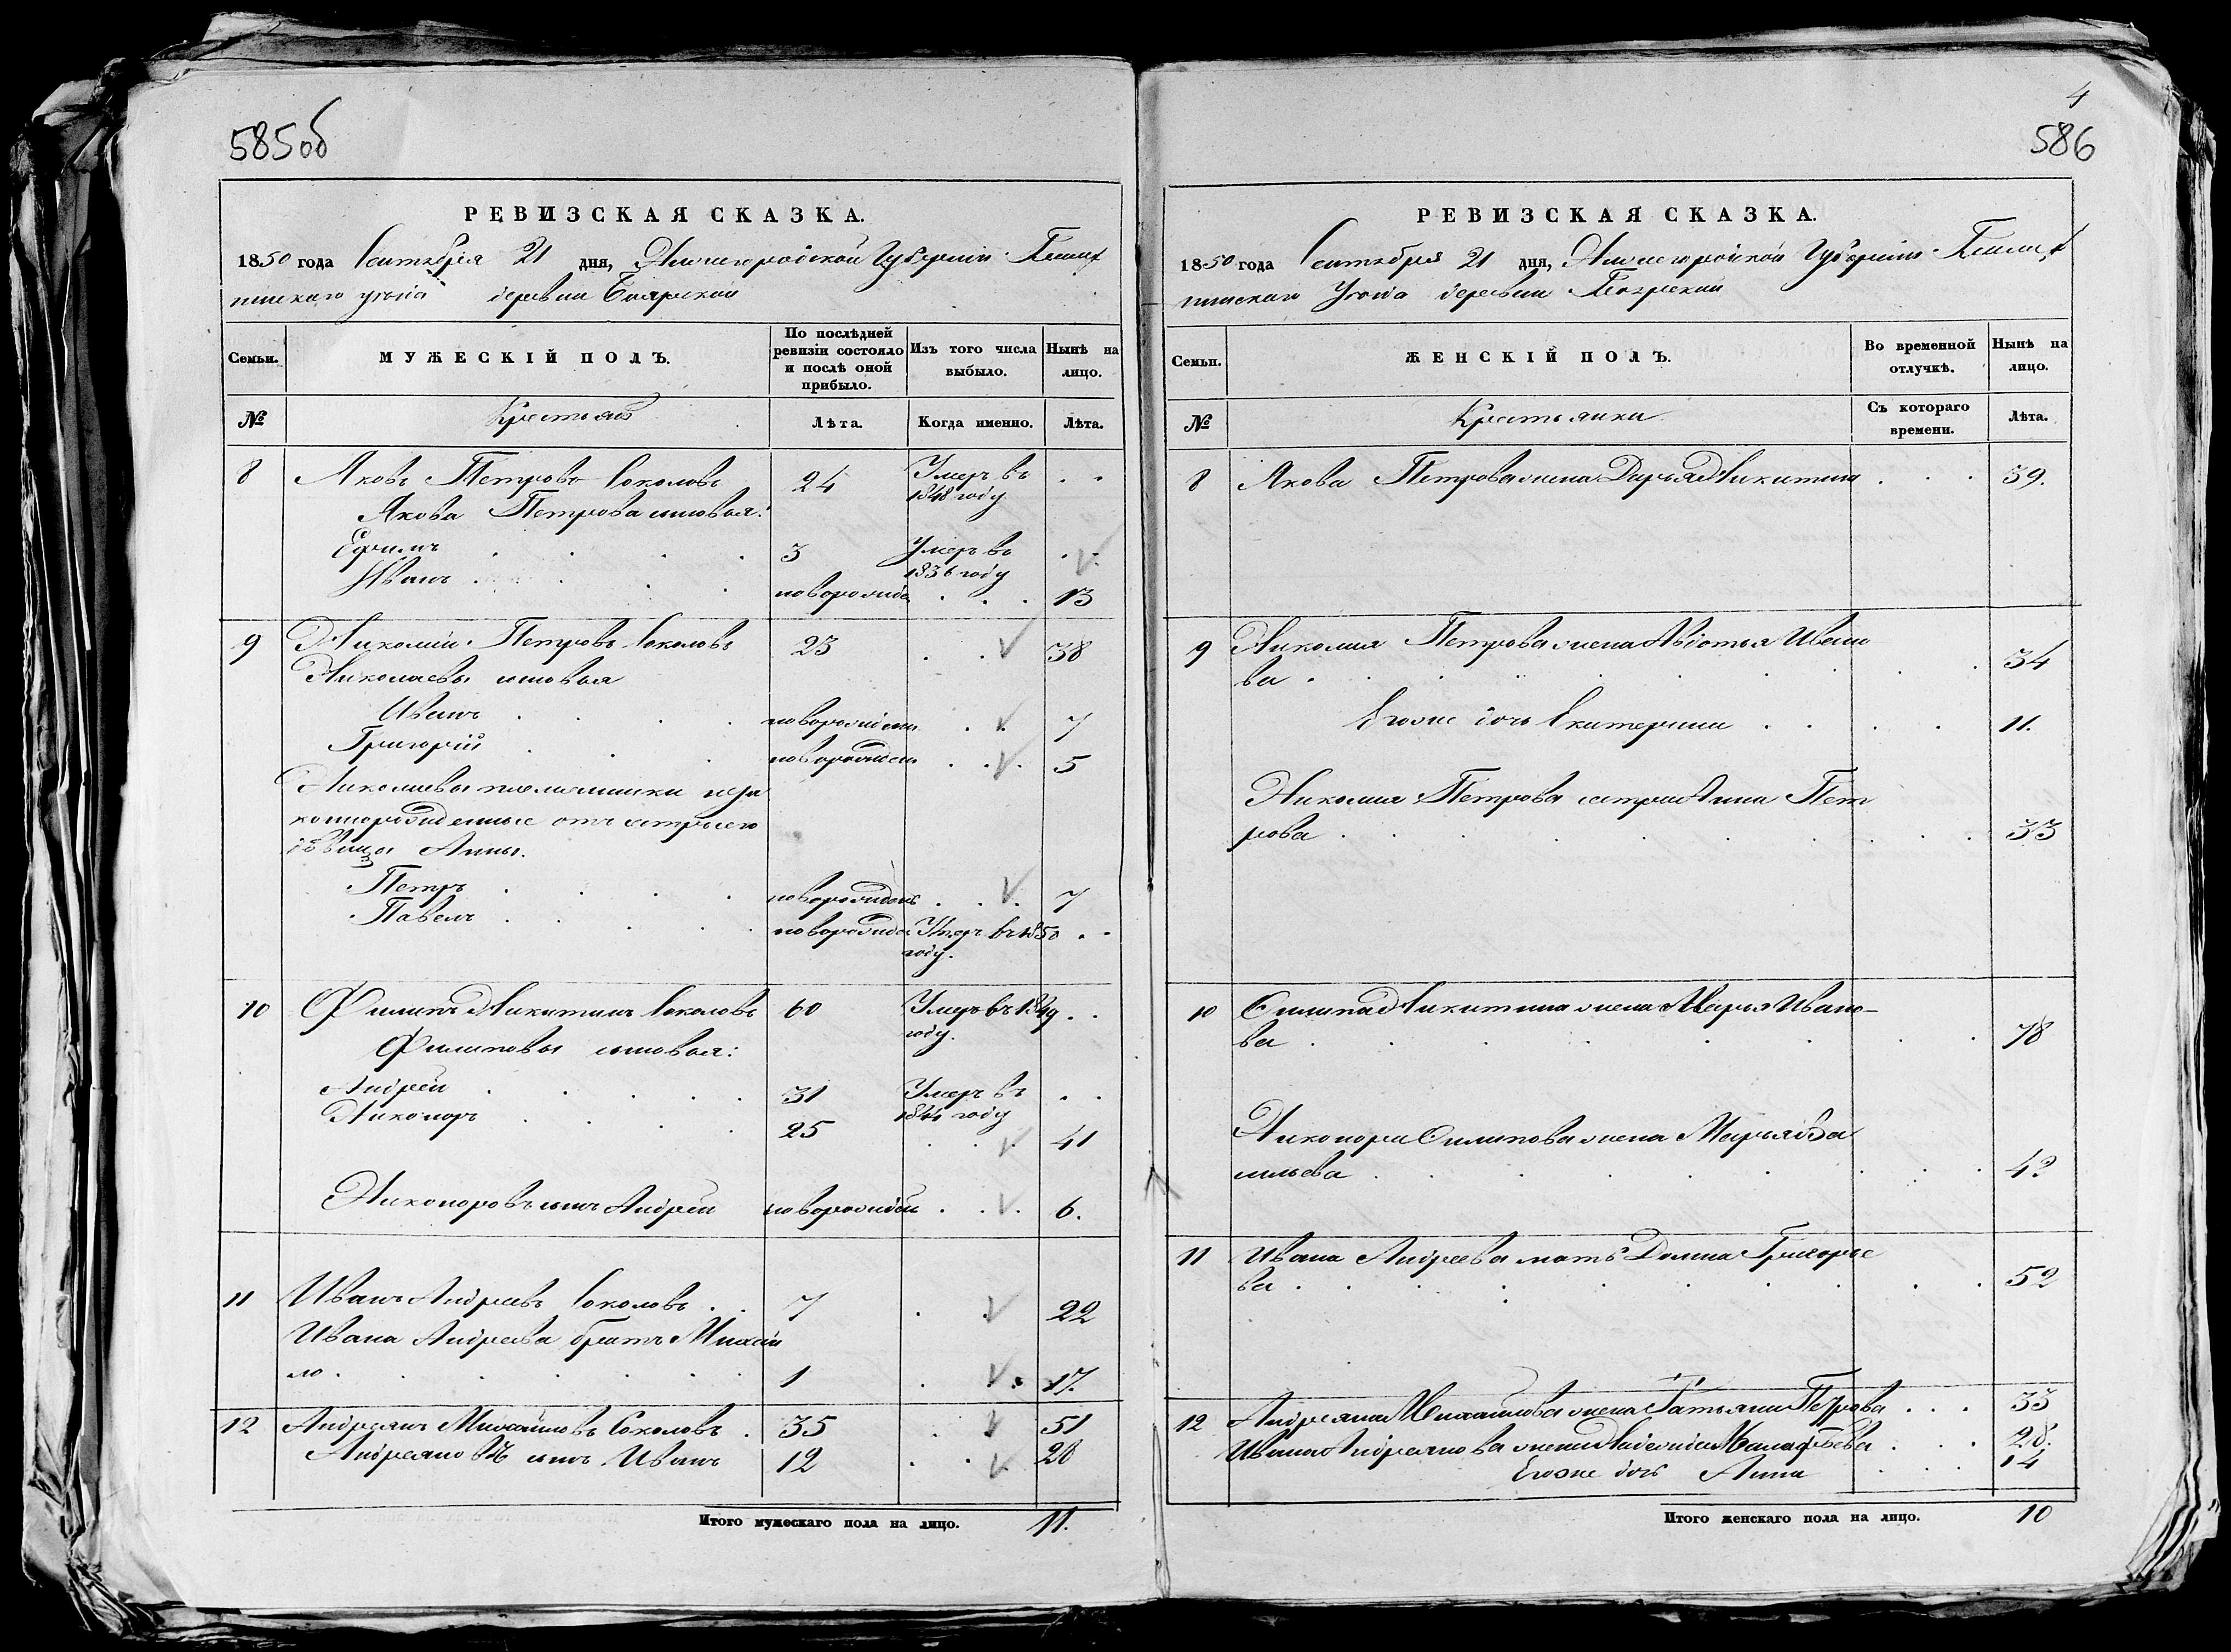 585об
РЕВИЗСКАЯ СКАЗКА.
1850 года Сентября 21 дня, Нижегородской Губерніи
уезда деревни Боярской
Семьи.
МУЖЕСКІЙ ПОЛЪ.
По послѣдней ревизіи состояло и послѣ оной прибыло.
Изъ того числа выбыло.
Нынѣ на лицо.
№
Крестьяне
Лѣта.
Когда именно.
Лѣта.
8 Яковъ Петровъ Соколовъ 24 Умеръ въ 1848 году . .
Якова Петрова сыновья:
Ефимъ . . . . 3 Умеръ въ 1836 году . .
Иванъ . . . новорожде . . . 13
9 Николай Петровъ Соколовъ 23 . . 38
Николаевы сыновья
Иванъ . . . . новорожден . . 7
Григорій . . . новорожден . . . 5
Николаевы племянники неза
коннорожденные отъ сестры его
дѣвицы Анны.
Петръ . . . . новорожден . . . 7
Павелъ . . . . новорожде Умеръ въ 1850 году. . .
10 Филипъ Никитинъ Соколовъ 60 Умеръ въ 1849 году. . .
Филиповы сыновья:
Андрей . . . . . 31 Умеръ въ 1844 году . .
Никоноръ . . . . 25 . . . 41
Никоноровъ сынъ Андрей новорожден . . . 6.
11 Иванъ Андреевъ Соколовъ . . 7 . . 22
Ивана Андреева братъ Михай
ло . . . . . . 1 . . 17.
12 Андреянъ Михайловъ Соколовъ . 35 . . 51
Андреяновъ сынъ Иванъ 12 . . . 28
Итого мужескаго пола на лицо. 11.
4
586
РЕВИЗСКАЯ СКАЗКА.
1850 года Сентября 21 дня, Нижегородской Губерніи
Уезда деревни Боярской
Семьи.
ЖЕНСКІЙ ПОЛЪ.
Во временной отлучкѣ.
Нынѣ на лицо.
№
Крестьянки
Съ котораго времени.
Лѣта.
8 Якова Петрова жена Дарья Никитина . . . 39.
9 Николая Петрова жена Авдотья Ивано
ва . . . . . . . . 34
Егоже дочь Екатерина . . . . 11.
Николая Петрова сестра Анна Пет
рова . . . . . . . 33
10 Филипа Никитина жена Марья Ивано-
ва . . . . . . . 78
Никонора Филипова жена Марья Ва
сильева . . . . . . . 42
11 Ивана Андреева мать Домна Григорье
ва . . . . . . . . 52
12 Андреяна Михайлова жена Татьяна Петрова . . . 33
Ивана Андреянова жена . . . 28.
Егоже дочь Анна . . . 14
Итого женскаго пола на лицо. 10